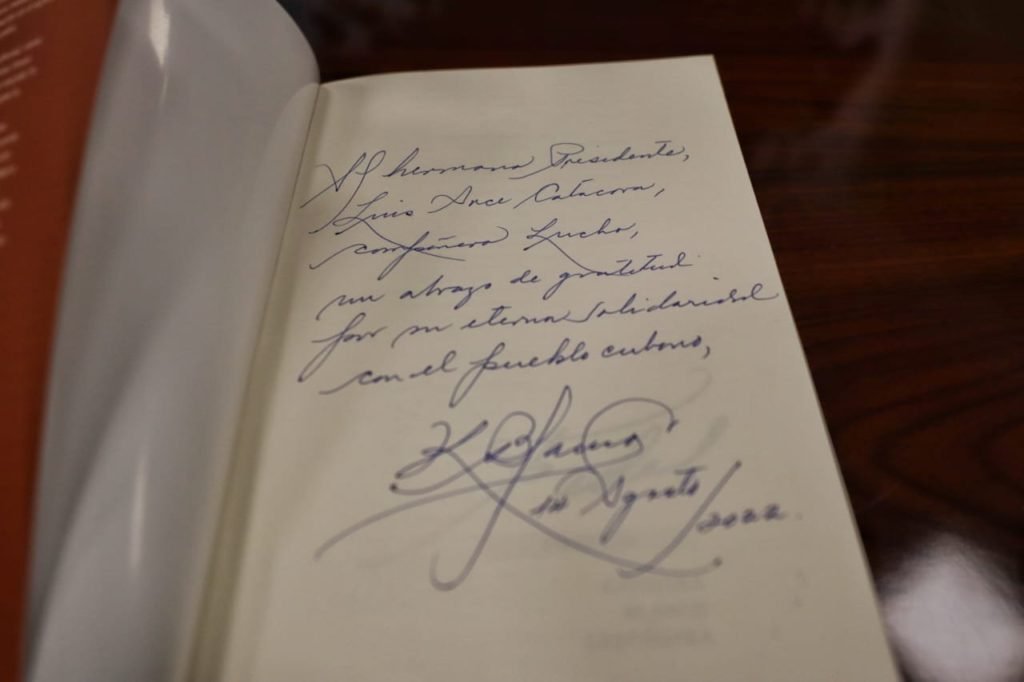 Al hermano Presidente,
Luis Arce Catacora,
compañero Lucho,
un abrazo de gratitud
por su eterna solidaridad
con el pueblo cubano,
Agosto
2022